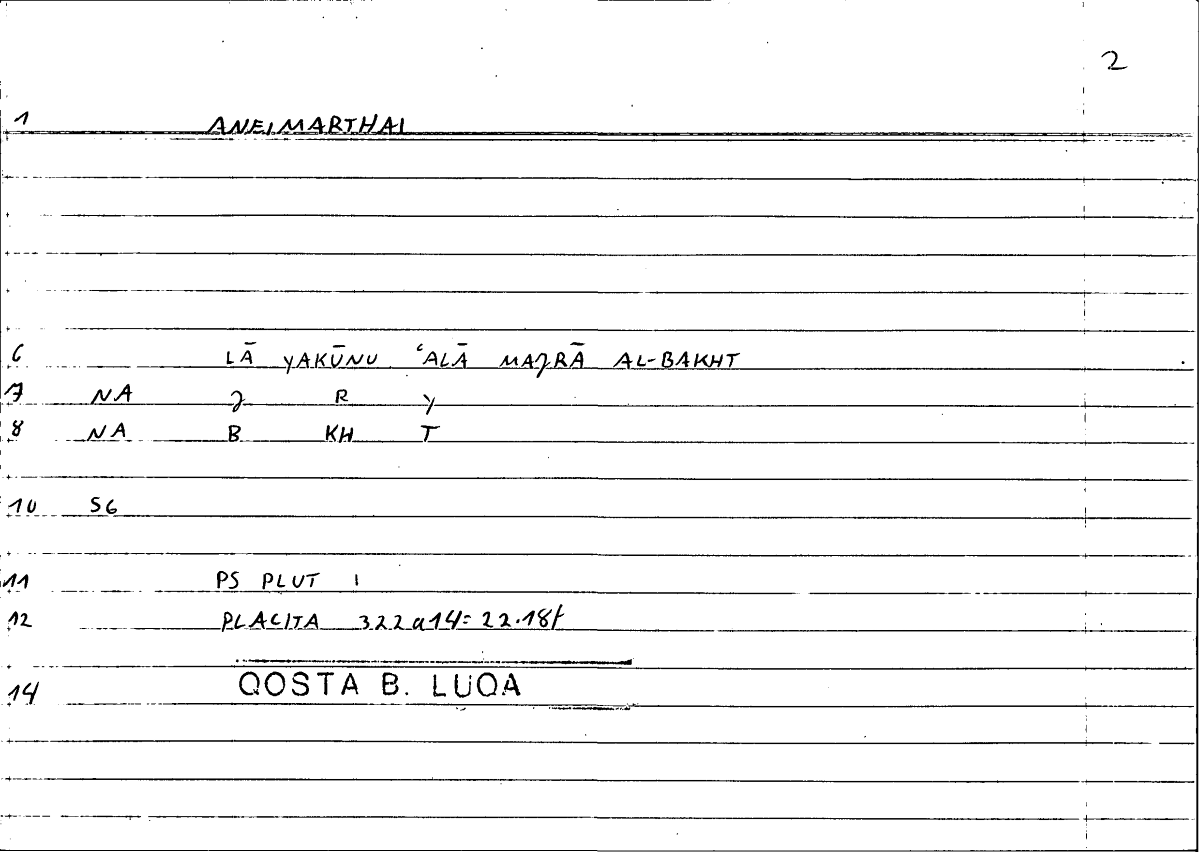 2
1 ANEIMARTHAI
6 LĀ YAKŪNU ʿALĀ MAJRĀ AL-BAKHT
7 NA J R Y
8 NA B KH T
10 S6
11 PS PLUT 1
12 PLACITA 322a14=22.18f
14 QOSTA B. LUQA